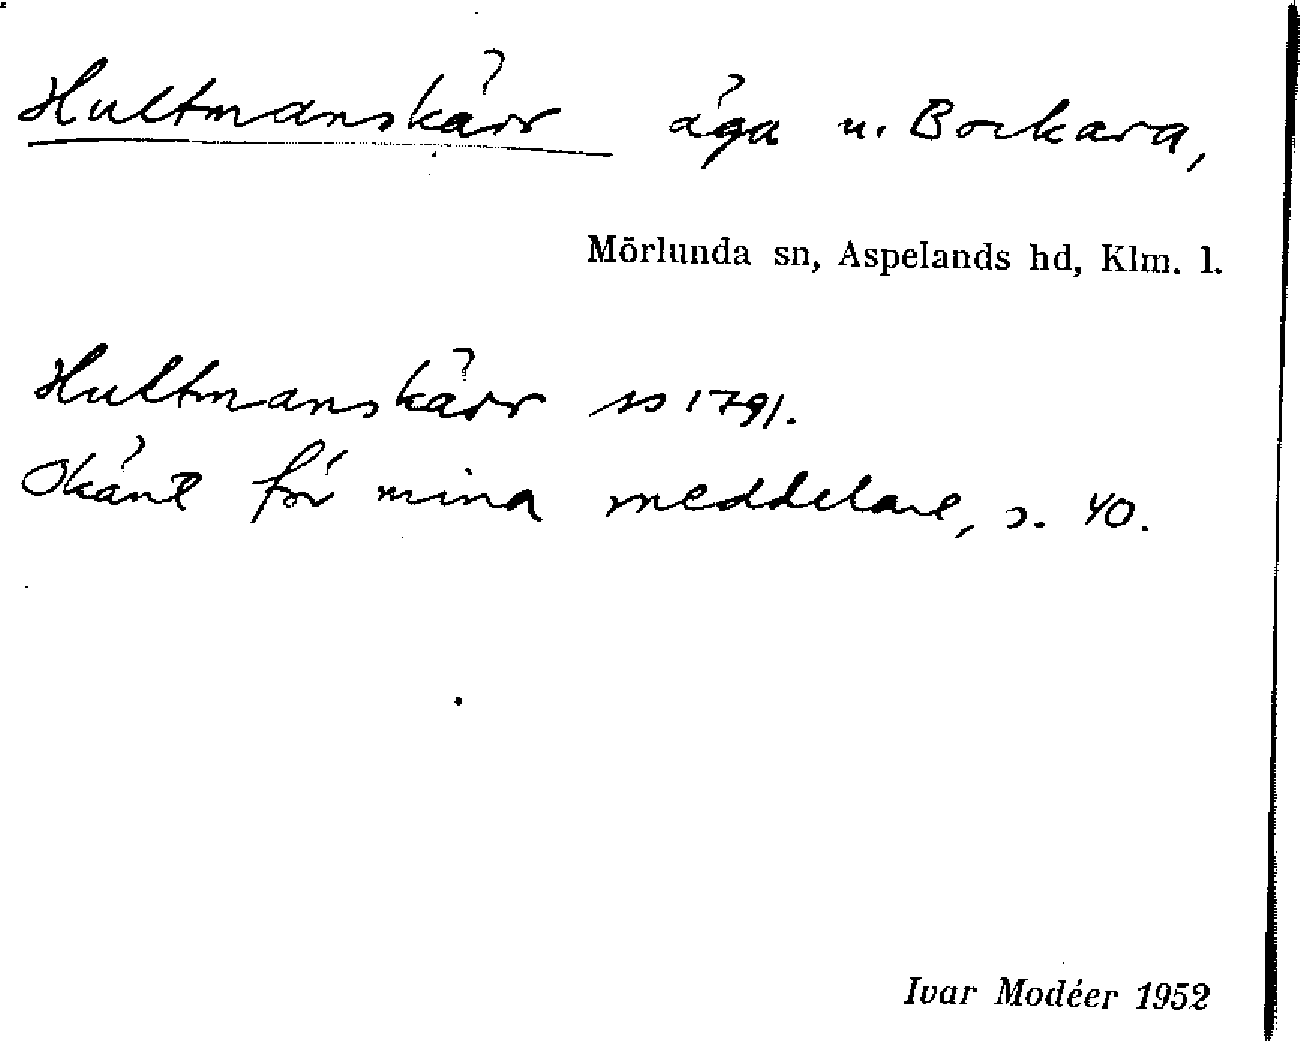 Hultmanskärr äga u. Bockara,
Mörlunda sn, Aspelands hd, Klm. l.
Hultmanskärr ss 1791.
Okänt för mina meddelare, s. 40.
Ivar Modéer 1952